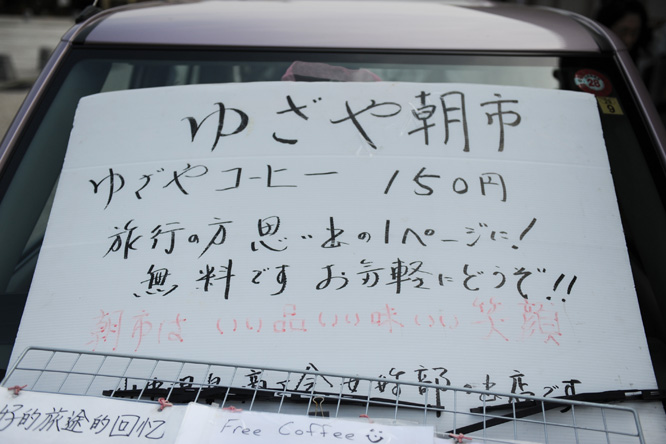 ゆざや朝市
ゆざやコーヒー 150円
旅行の方 思い出の1ページに!
無料です お気軽にどうぞ!!
朝市は いい品 いい味 いい笑顔
の出店です
好的旅途的回忆
Free Coffee